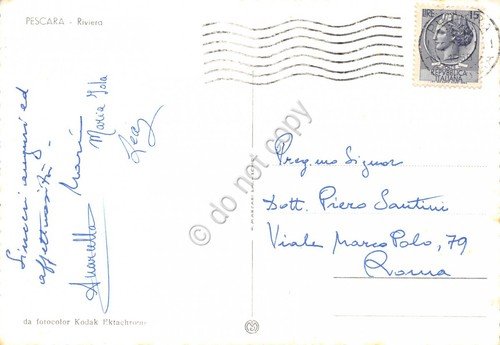 PESCARA - Riviera
LIRE 15
REPVBBLICA
ITALIANA
Sinceri auguri ed
affettuosità -
Annarella
Maria Iola
Preg.mo Signor
Dott. Piero Santini
Viale Marco Polo, 79
Roma
da fotocolor Kodak Ektachrome
do not copy